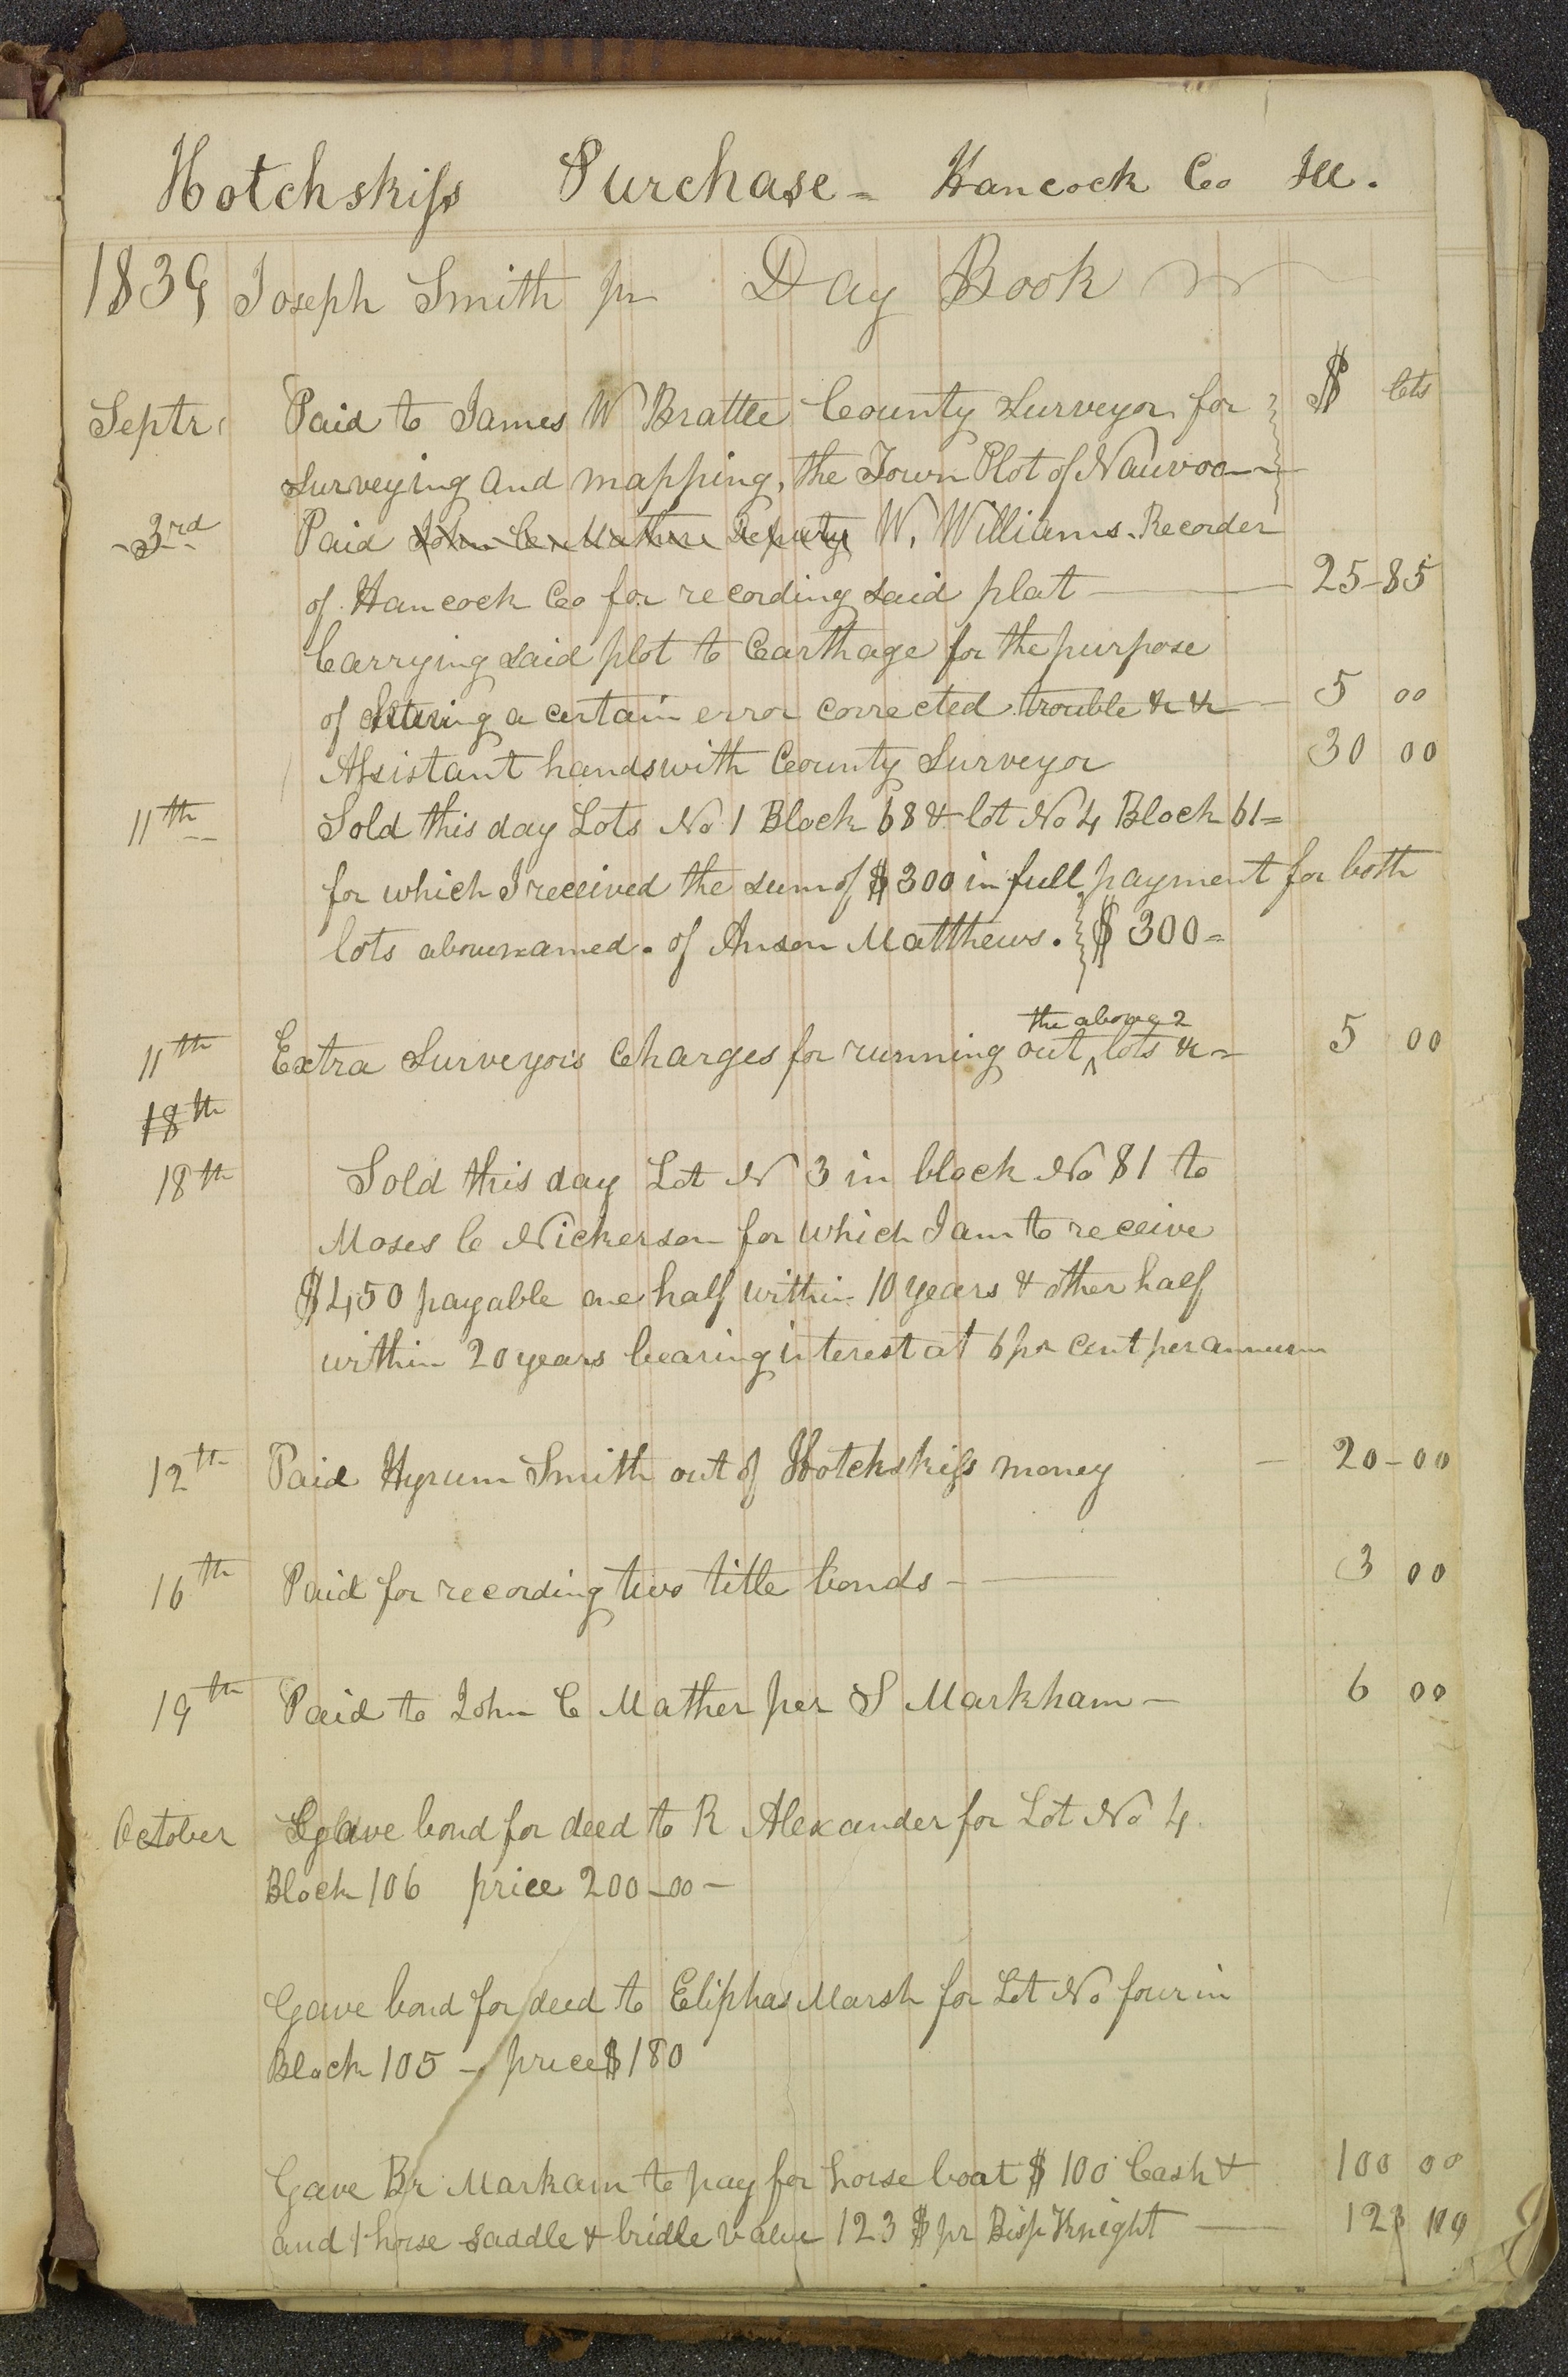 Hotchskiss Purchase = Hancock Co Ill.
1839 Joseph Smith jr Day Book
$ Cts
Septr. Paid to James W Brattle County Surveyor for
surveying and mapping, the Town Plot of Nauvoo
3rd Paid John C. Mather Deputy W. Williams. Recorder
of Hancock Co for recording said plat — 25-85
Carrying said plot to Carthage for the purpose
of a certain error corrected trouble &c &c — 5 00
Assistant hands with County Surveyor 30 00
11th Sold this day Lots No 1 Block 68 & lot No 4 Block 61=
for which I received the sum of $300 in full payment for both
lots abovenamed. of Anson Matthews. $300=
11th Extra Surveyors Charges for running out ^ the above 2 lots &c= 5 00
18th
18th Sold this day Lot N 3 in block No 81 to
Moses C Nickerson for which I am to receive
$450 payable one half within 10 years & other half
within 20 years bearing interest at 6 pr cent per annum
12th Paid Hyrum Smith out of Hotchskiss money — 20-00
16th Paid for recording two title bonds — 3 00
19th Paid to John C Mather per S Markham — 6 00
October Gave bond for deed to R Alexander for Lot No 4
Block 106 price 200-00-
Gave bond for deed to Eliphas Marsh for Lot No four in
Block 105 - price $180
Gave Br Markam to pay for horse boat $100 Cash & 100 00
and 1 horse saddle & bridle value 123 $ pr Bisp Knight — 123